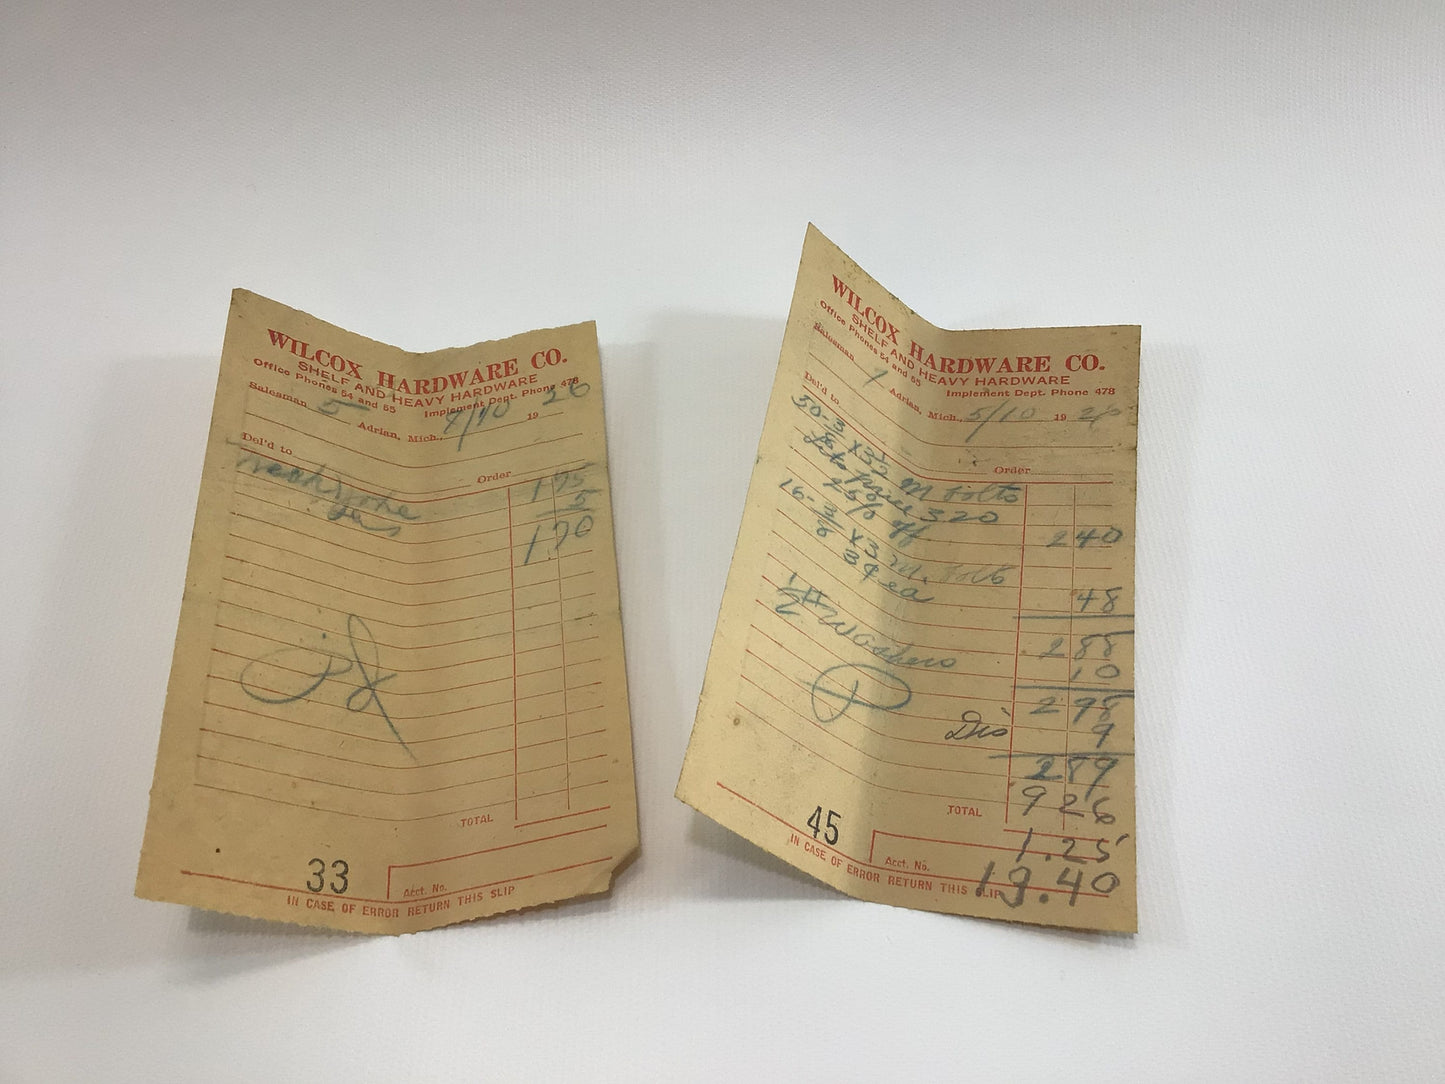 WILCOX HARDWARE CO.
SHELF AND HEAVY HARDWARE
Office Phones 54 and 55 Implement Dept. Phone 478
Salesman 5 Adrian, Mich., /10 19 26
Del'd to
Order
1 75
5
1 70
TOTAL
33
Acct. No.
IN CASE OF ERROR RETURN THIS SLIP
WILCOX HARDWARE CO.
SHELF AND HEAVY HARDWARE
Office Phones 54 and 55 Implement Dept. Phone 478
Salesman 7 Adrian, Mich., 5/10 19 26
Del'd to
Order
50 - 3/8 x 3 1/2 M bolts
List price 320
25% off 2 40
16 - 3/8 x 3 M. bolts
3¢ ea 48
2 88
1/2 # Washers 10
2 98
Dis 9
2 89
9 26
TOTAL
1.25
13.40
45
Acct. No.
IN CASE OF ERROR RETURN THIS SLIP